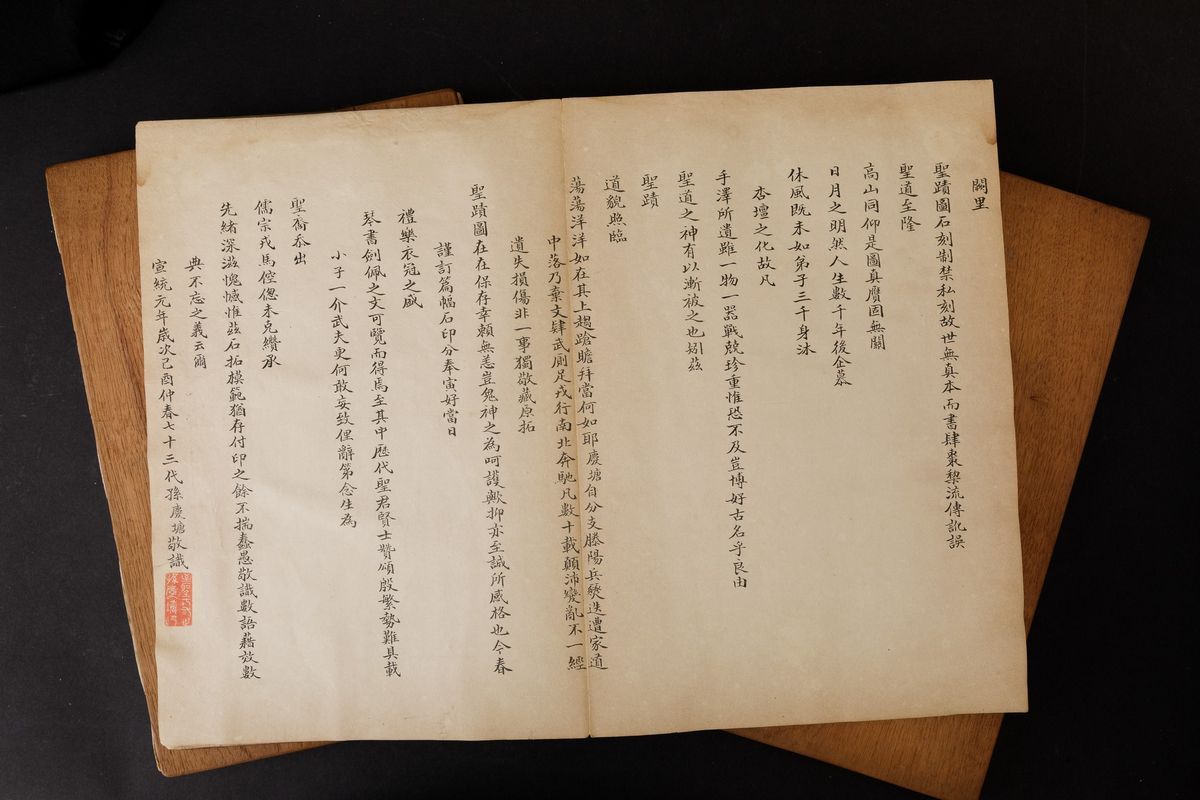 闕里
聖蹟圖石刻制禁私刻故世無真本而書肆棗棃流傳訛誤
聖道至隆
高山同仰是圖真贋固無關
日月之明然人生數千年後企慕
休風既未如弟子三千身沐
杏壇之化故凡
手澤所遺雖一物一器戰兢珍重惟恐不及豈博好古名乎良由
聖道之神有以漸被之也矧茲
聖蹟
道貌照臨
蕩蕩洋洋如在其上趨蹌瞻拜當何如耶慶塘自分支滕陽兵燹迭遭家道
中落乃棄文肄武廁足戎行南北奔馳凡數十載顛沛變亂不一經
遺失損傷非一事獨敬藏原拓
聖蹟圖在在保存幸賴無恙豈鬼神之為呵護歟抑亦至誠所感格也今春
謹訂篇幅石印分奉寅好當日
禮樂衣冠之盛
琴書劍佩之文可覽而得焉至其中歷代聖君賢士贊頌殷繁勢難具載
小子一介武夫更何敢妄致俚辭第念生為
聖裔忝出
儒宗戎馬倥傯未克纘承
先緒深滋愧慽惟茲石拓模範猶存付印之餘不揣蠢愚敬識數語藉效數
典不忘之義云爾
宣統元年歲次己酉仲春七十三代孫慶塘敬識